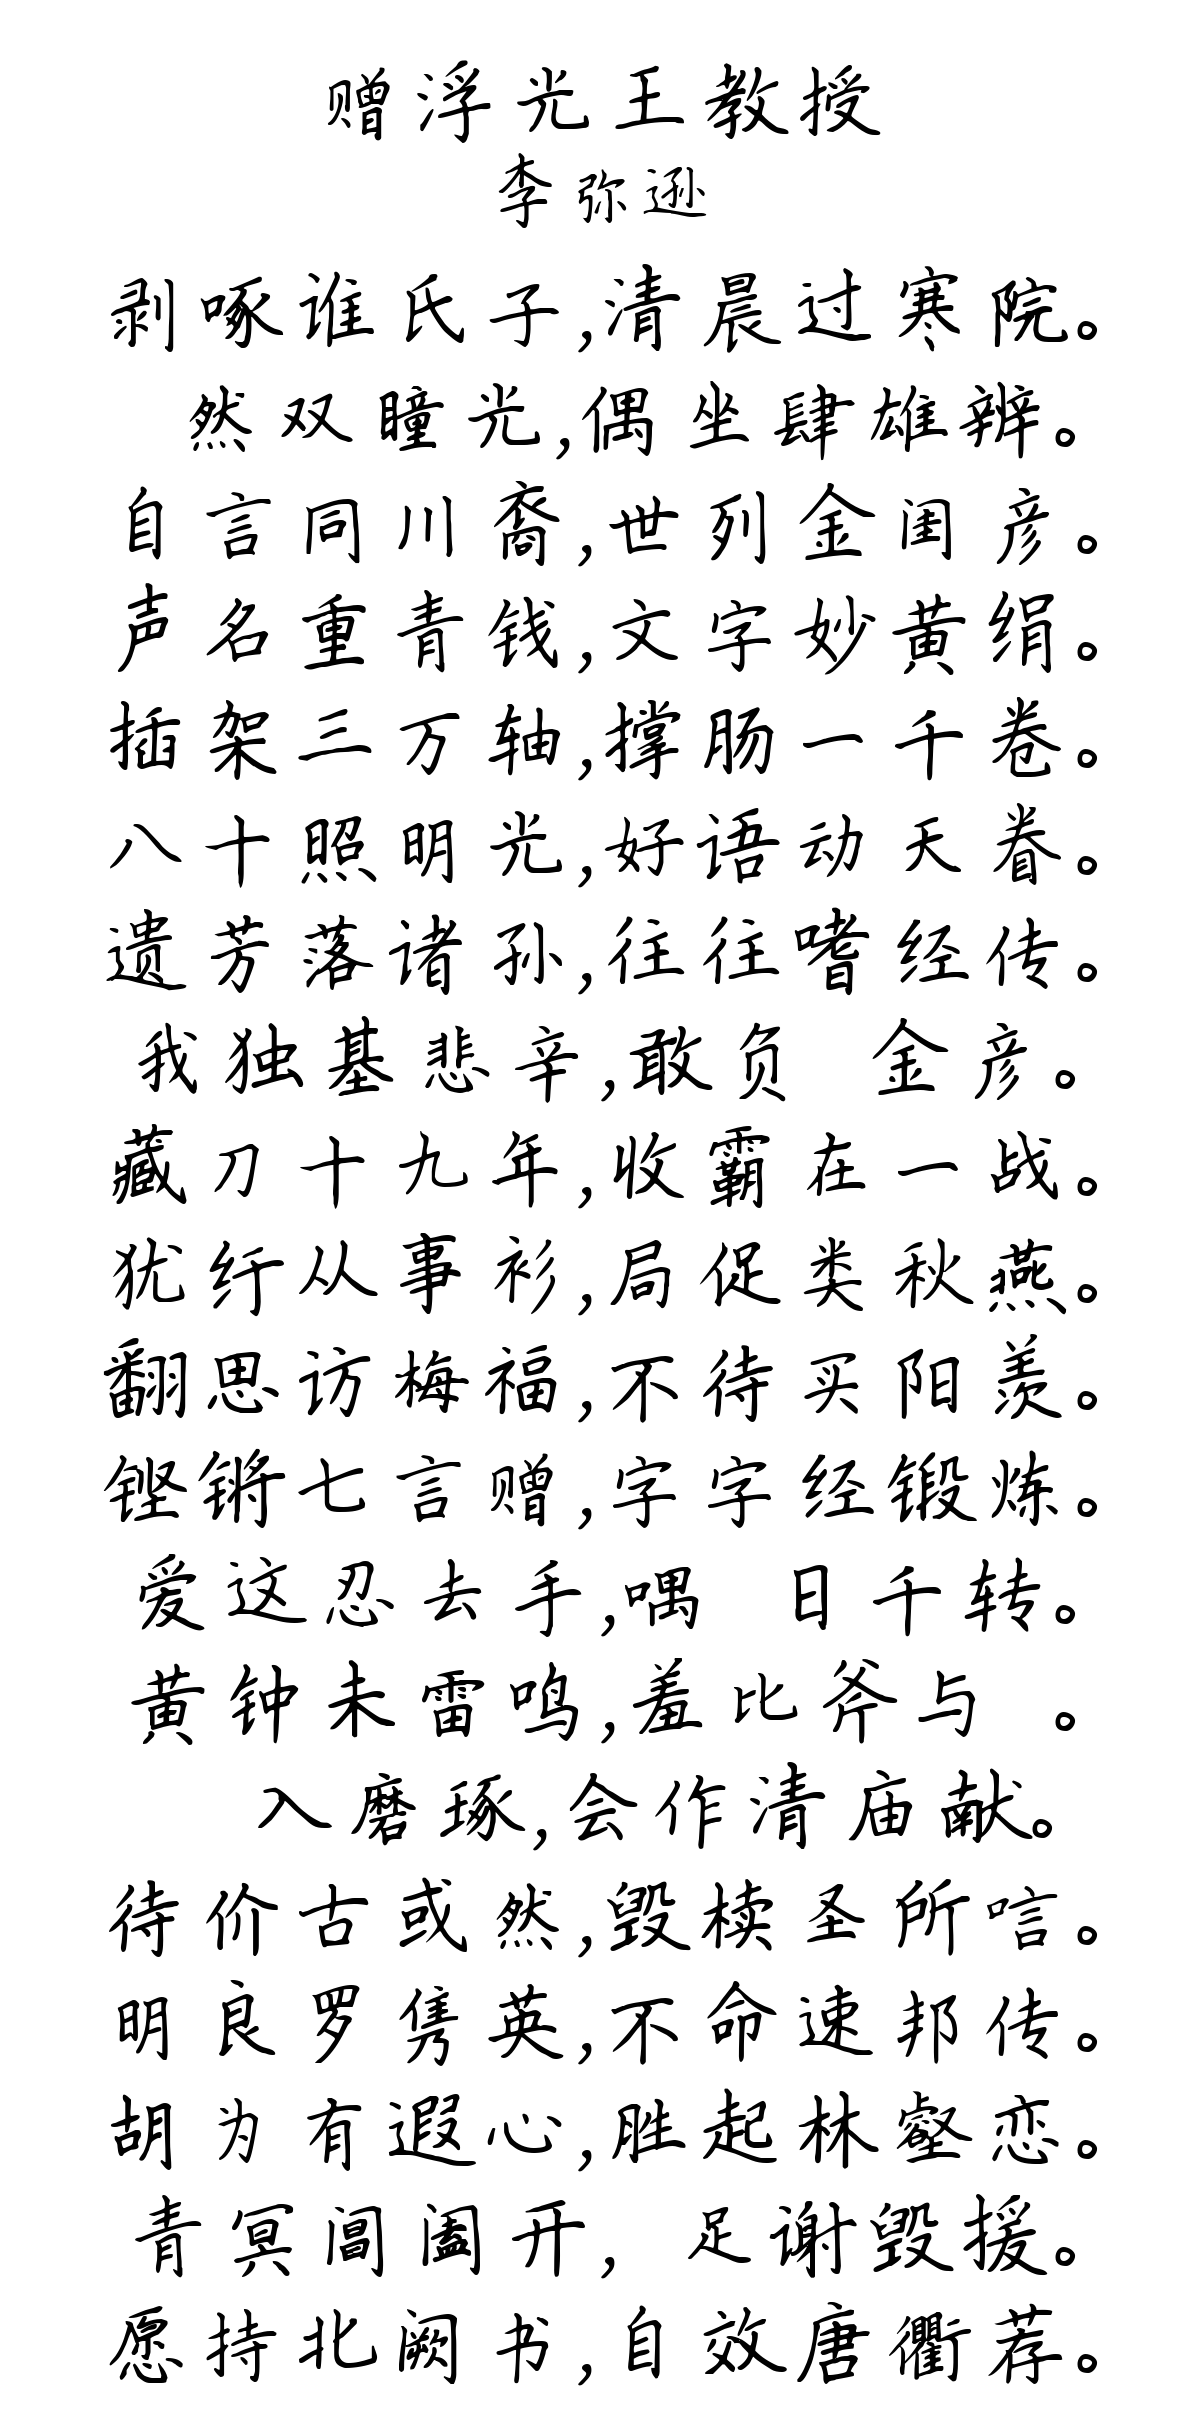 赠浮光王教授
李弥逊
剥啄谁氏子,清晨过寒院。
然双瞳光,偶坐肆雄辨。
自言同川裔,世列金闺彦。
声名重青钱,文字妙黄绢。
插架三万轴,撑肠一千卷。
八十照明光,好语动天眷。
遗芳落诸孙,往往嗜经传。
我独基悲辛,敢负 金彦。
藏刀十九年,收霸在一战。
犹纡从事衫,局促类秋燕。
翻思访梅福,不待买阳羡。
铿锵七言赠,字字经锻炼。
爱这忍去手,喁 日千转。
黄钟未雷鸣,羞比斧与 。
入磨琢,会作清庙献。
待价古或然,毁椟圣所唁。
明良罗隽英,不命速邦传。
胡为有遐心,胜起林壑恋。
青冥阊阖开, 足谢毁援。
愿持北阙书,自效唐衢荐。